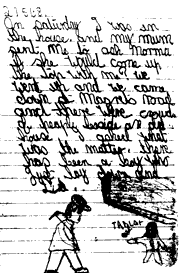 21.5.68.
On saturday I was in
the house and my mum
sent me to ask Norma
if she would come up
the top with me we
went up and we came
down at Magrets Road
and there were crowds
of people beside a old
house I asked what
was the matter there
has been a boy who
just lay down and
died